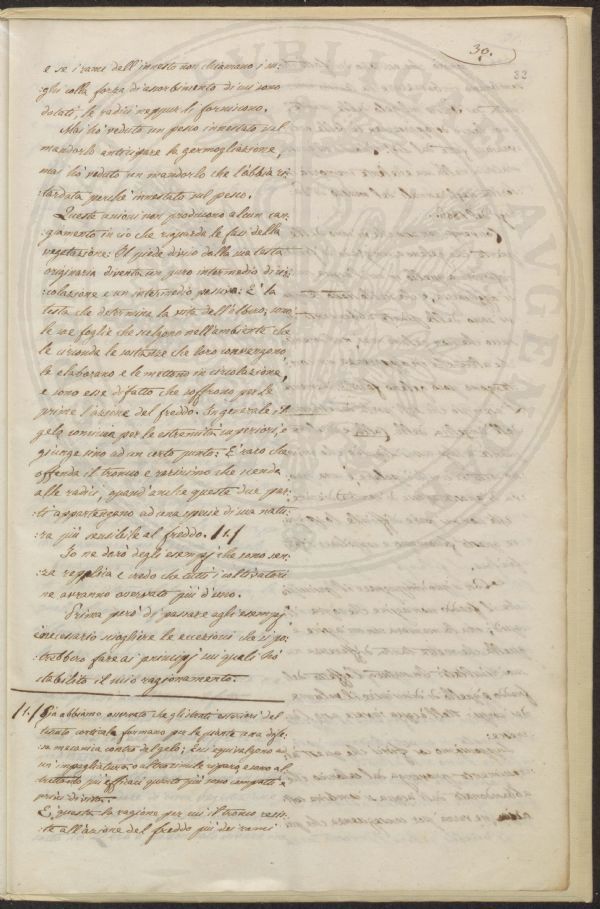 30.
33
e se i rami dell'innesto non chiamano i su=
:ghi colla forza di assorbimento di cui sono
dotati, le radici neppur li forniscono.
Mai hò veduto un pesco innestato sul
mandorlo anticipare la germogliazione,
mai hò veduto un mandorlo che l'abbia ri=
:tardata perchè innestato sul pesco.
Queste unioni non producono alcun can=
:giamento in ciò che riguarda le fasi della
vegetazione: Il piede diviso dalla sua testa
originaria diventa un puro intermedio di cir=
:colazione e un intermedio passivo: È la
testa che determina la vita dell'albero, sono
le sue foglie che scelgono nell'ambiente che
le circonda le sostanze che loro convengono,
le elaborano e le mettono in circolazione,
e sono esse di fatto che soffrono per le
prime l'azione del freddo. In generale il
gelo comincia per le estremità superiori, e
giunge sino ad un certo punto: È raro che
offenda il tronco e rarissimo che scenda
alle radici, quand'anche queste due par=
:ti appartengano ad una specie di sua natu=
:ra più sensibile al freddo. /1./
Io ne darò degli esempj che sono sen=
:za replica e credo che tutti i coltivatori
ne avranno osservato più d'uno.
Prima però di passare agli esempj
è necessario sciogliere le eccezioni che si po=
:trebbero fare ai principj sui quali hò
stabilito il mio ragionamento.
/1./ Già abbiamo osservato che gli strati esteriori del
tessuto corticale formano per le piante una dife=
:sa meccanica contro del gelo; Essi equivalgono a
un impagliatura, o altro simile riparo, e sono al=
trettanto più efficaci quanto più sono compatti e
privi di vita.
E questa la ragione per cui il tronco resi=
:ste all'azione del freddo più dei rami